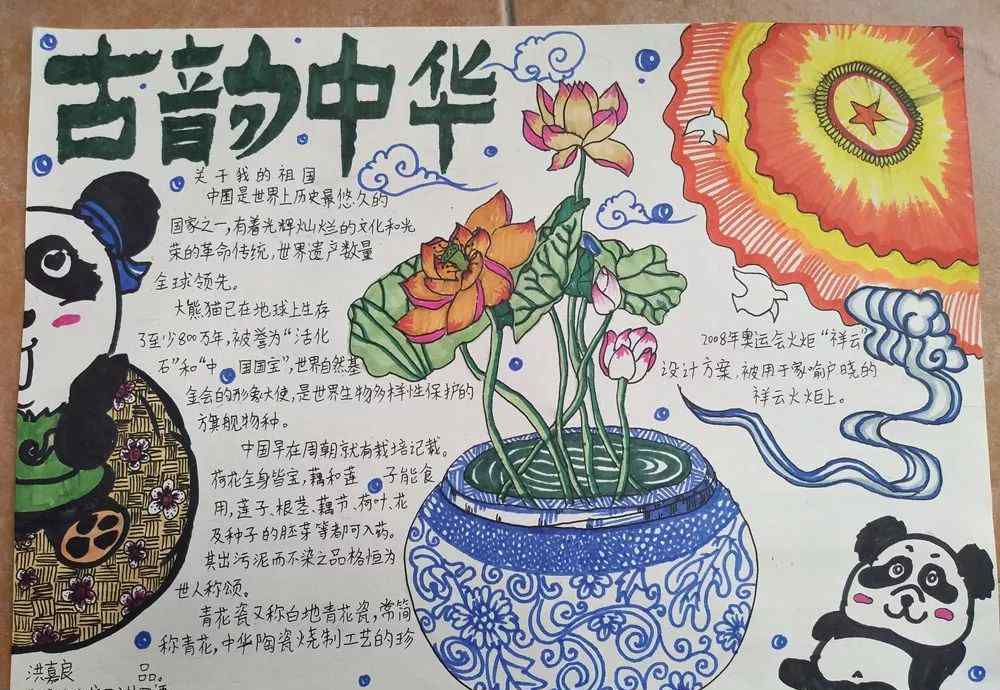 古韵中华
关于我的祖国
中国是世界上历史最悠久的
国家之一,有着光辉灿烂的文化和光
荣的革命传统,世界遗产数量
全球领先。
大熊猫已在地球上生存
了至少800万年,被誉为“活化
石”和“中国国宝”,世界自然基
金会的形象大使,是世界生物多样性保护的
旗舰物种。
中国早在周朝就有栽培记载。
荷花全身皆宝,藕和莲子能食
用,莲子、根茎、藕节、荷叶、花
及种子的胚芽等都可入药。
其出污泥而不染之品格恒为
世人称颂。
青花瓷又称白地青花瓷,常简
称青花,中华陶瓷烧制工艺的珍
品。
洪嘉良
2008年奥运会火炬“祥云”
设计方案,被用于家喻户晓的
祥云火炬上。